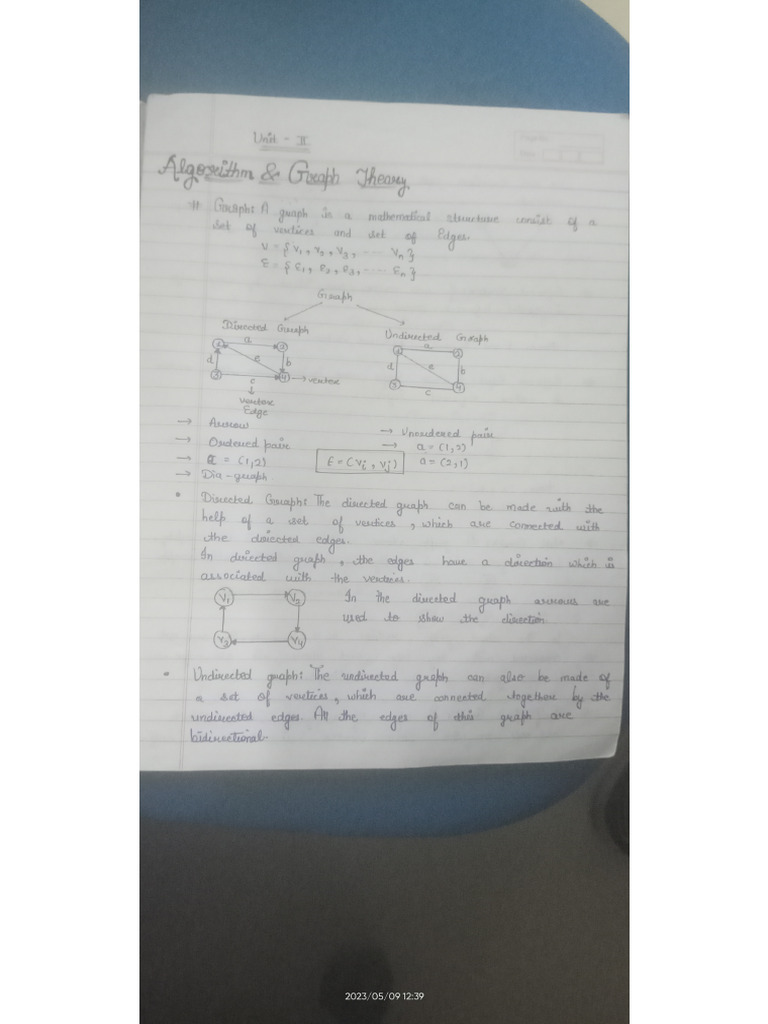 Unit - II
Algorithm & Graph Theory
# Graph: A graph is a mathematical structure consist of a
set of vertices and set of Edges.
V = {V₁, V₂, V₃, ---- Vₙ}
E = {E₁, e₂, e₃, ---- Eₙ}
Graph
Directed Graph
Undirected Graph
a
d
e
b
3
4
→ vertex
c
vertex
Edge
a
2
d
e
b
3
4
c
→ Arrow
→ Ordered pair
→ = (1,2)
→ Dia-graph
E = (Vi, Vj)
→ Unordered pair
→ a = (1,2)
a = (2,1)
• Directed Graph: The directed graph can be made with the
help of a set of vertices, which are connected with
the directed edges.
In directed graph, the edges have a direction which is
associated with the vertices.
V₁
V₂
V₃
V₄
In the directed graph arrows are
used to show the direction
• Undirected graph: The undirected graph can also be made of
a set of vertices, which are connected together by the
undirected edges. All the edges of this graph are
bidirectional.
2023/05/09 12:39